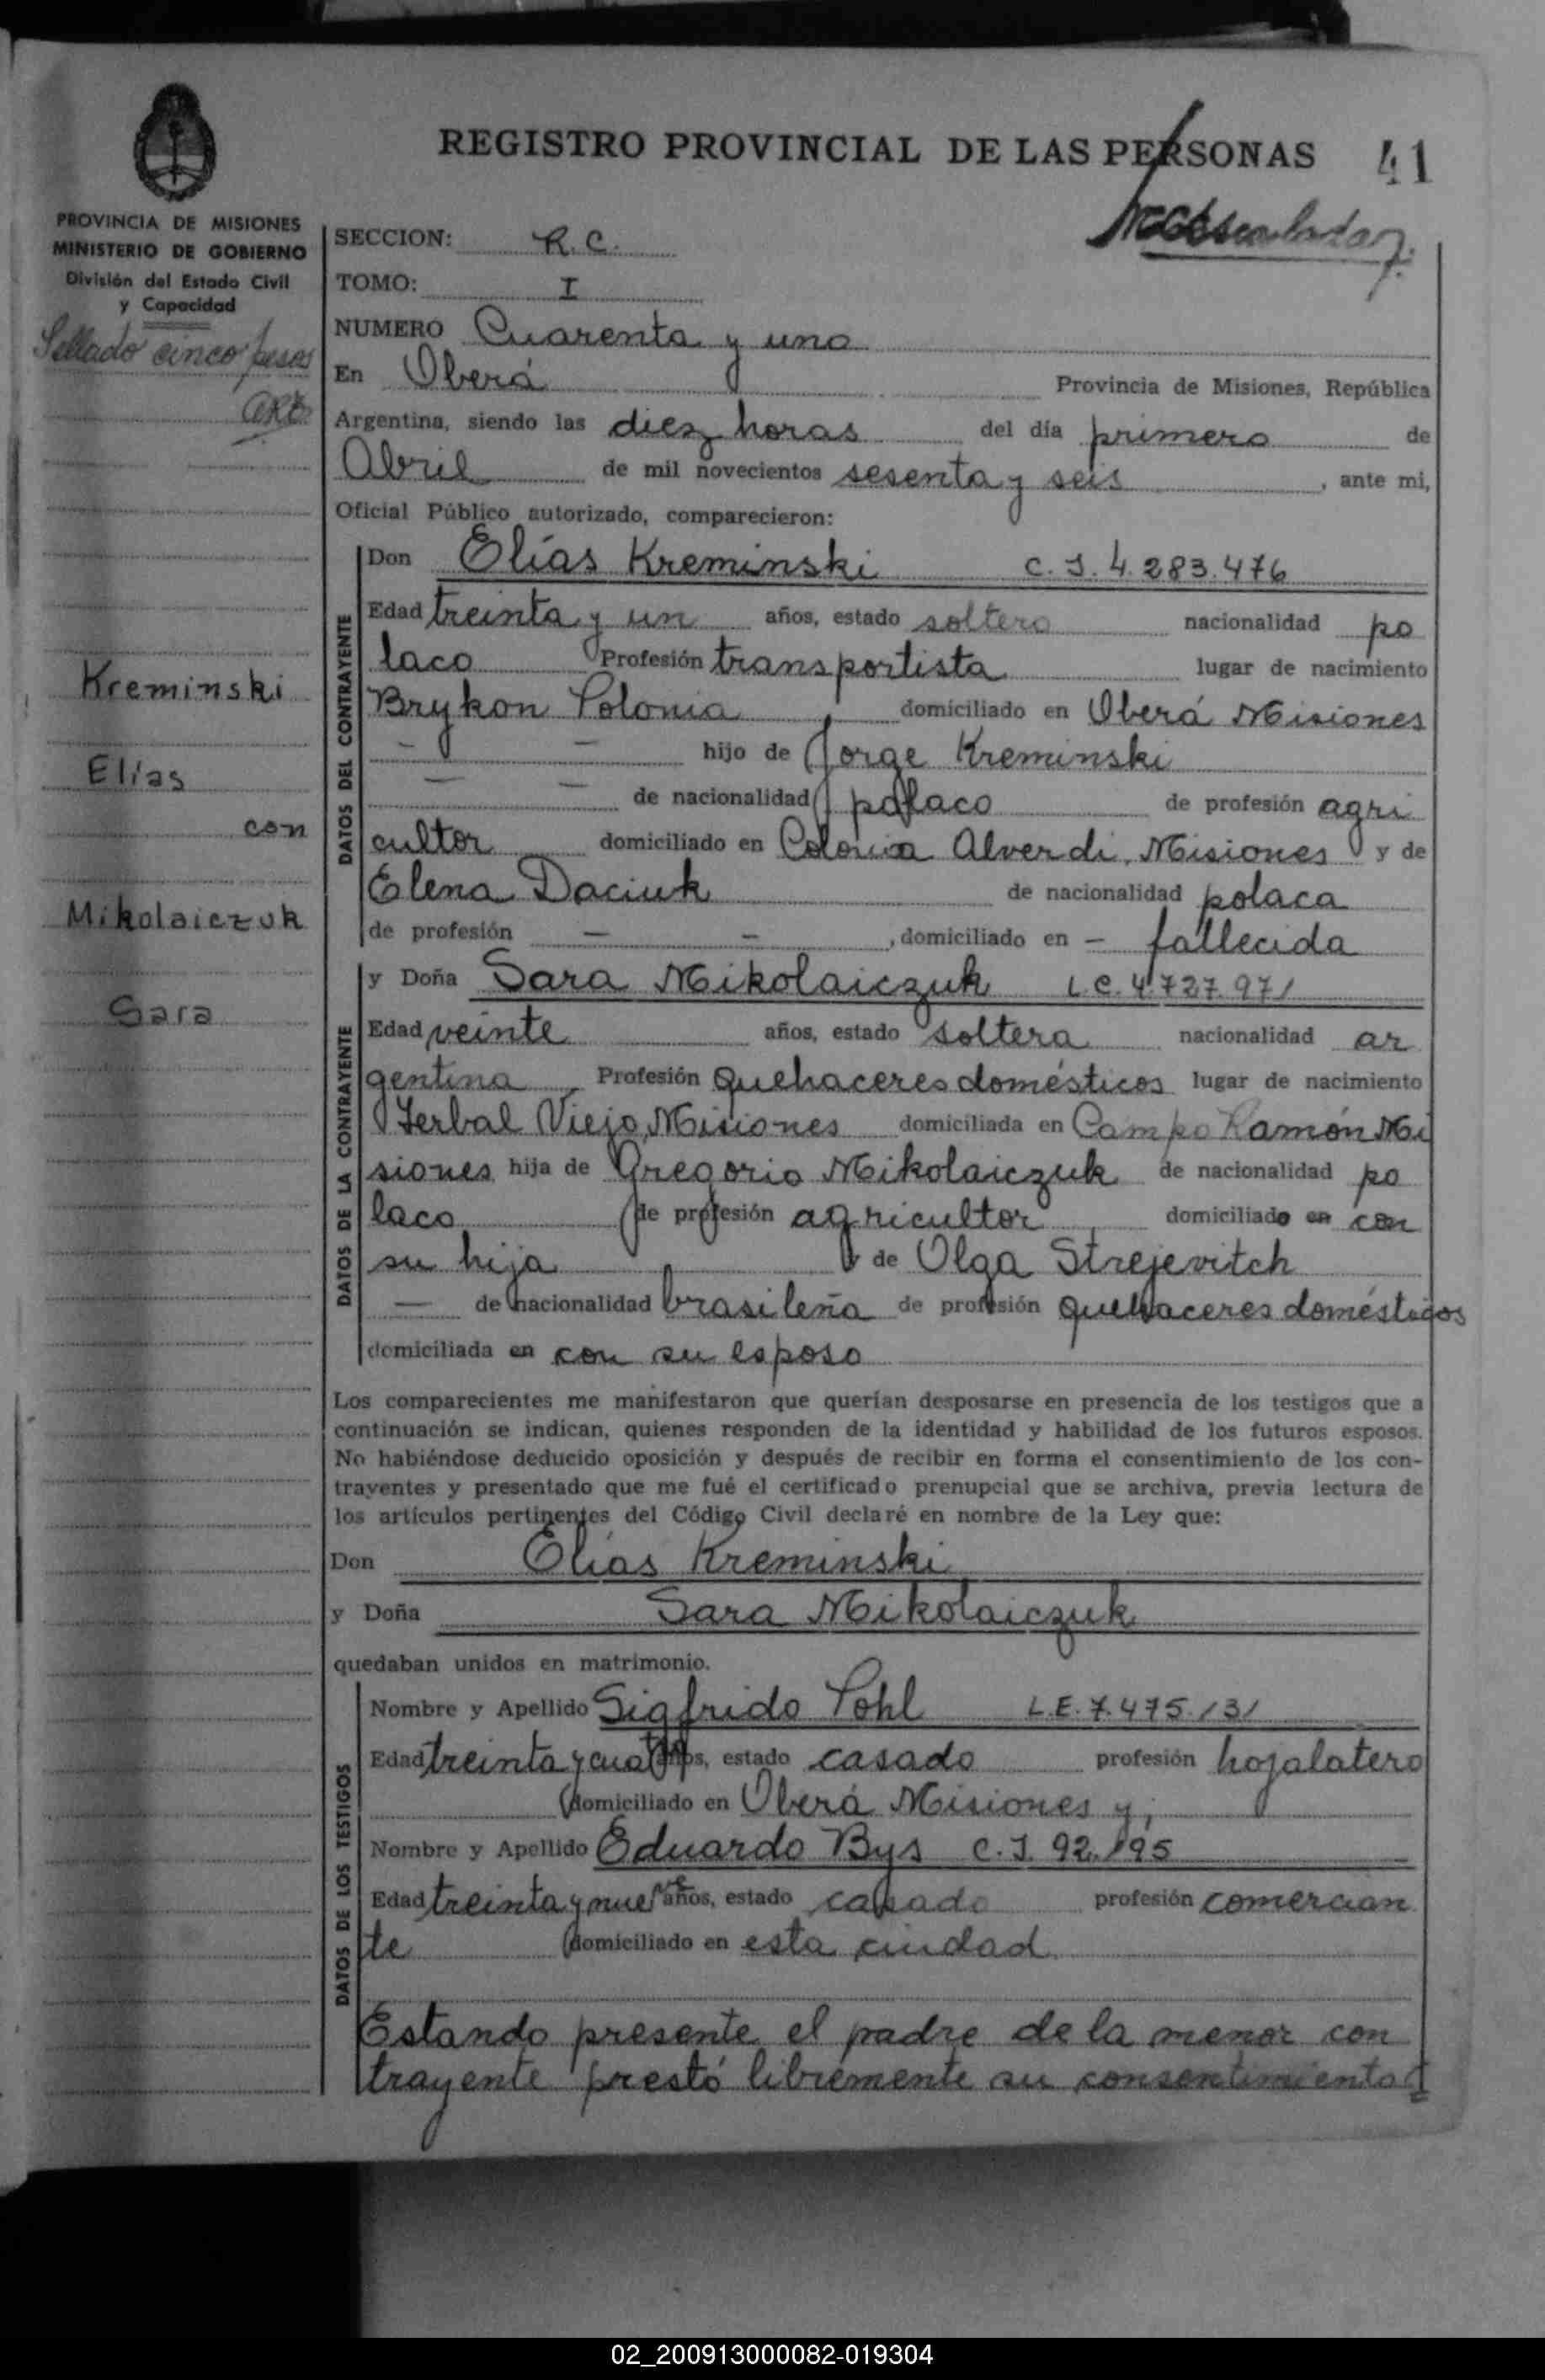 REGISTRO PROVINCIAL DE LAS PERSONAS 41
PROVINCIA DE MISIONES
MINISTERIO DE GOBIERNO
División del Estado Civil
y Capacidad
Sellado cinco pesos
Kreminski
Elías
con
Mikolaiczuk
Sara
SECCION: R. C.
TOMO: I
NUMERO Cuarenta y uno
En Oberá Provincia de Misiones, República
Argentina, siendo las diez horas del día primero de
Abril de mil novecientos sesenta y seis, ante mi,
Oficial Público autorizado, comparecieron:
DATOS DEL CONTRAYENTE
Don Elías Kreminski C. I. 4.283.476
Edad treinta y un años, estado soltero nacionalidad po
laco Profesión transportista lugar de nacimiento
Brykon Polonia domiciliado en Oberá Misiones
— — hijo de Jorge Kreminski
— — de nacionalidad polaco de profesión agri
cultor domiciliado en Colonia Alverdi, Misiones y de
Elena Daciuk de nacionalidad polaca
de profesión — — , domiciliado en — fallecida
DATOS DE LA CONTRAYENTE
y Doña Sara Mikolaiczuk L.C. 4.727.971
Edad veinte años, estado soltera nacionalidad ar
gentina Profesión Quehaceres domésticos lugar de nacimiento
Yerbal Viejo, Misiones domiciliada en Campo Ramón Mi
siones hija de Gregorio Mikolaiczuk de nacionalidad po
laco de profesión agricultor domiciliado en con
su hija y de Olga Strejevitch
— de nacionalidad brasileña de profesión quehaceres domésticos
domiciliada en con su esposo
Los comparecientes me manifestaron que querían desposarse en presencia de los testigos que a
continuación se indican, quienes responden de la identidad y habilidad de los futuros esposos.
No habiéndose deducido oposición y después de recibir en forma el consentimiento de los con-
trayentes y presentado que me fué el certificado prenupcial que se archiva, previa lectura de
los artículos pertinentes del Código Civil declaré en nombre de la Ley que:
Don Elías Kreminski
y Doña Sara Mikolaiczuk
quedaban unidos en matrimonio.
DATOS DE LOS TESTIGOS
Nombre y Apellido Sigfrido Pohl L.E. 7.475.131
Edad treinta y cuatro años, estado casado profesión hojalatero
domiciliado en Oberá Misiones y;
Nombre y Apellido Eduardo Bys C. I. 92.195
Edad treinta y nueve años, estado casado profesión comercian
te domiciliado en esta ciudad
Estando presente el padre de la menor con
trayente prestó libremente su consentimiento
02_200913000082-019304